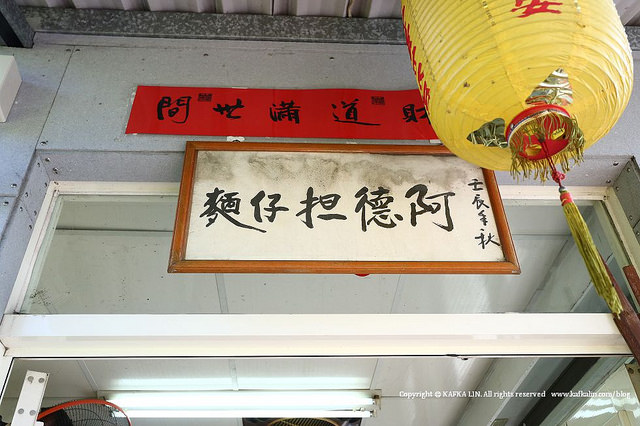 財道滿世間
阿德担仔麵
壬辰年秋
安
Copyright © KAFKA LIN. All rights reserved www.kafkalin.com/blog